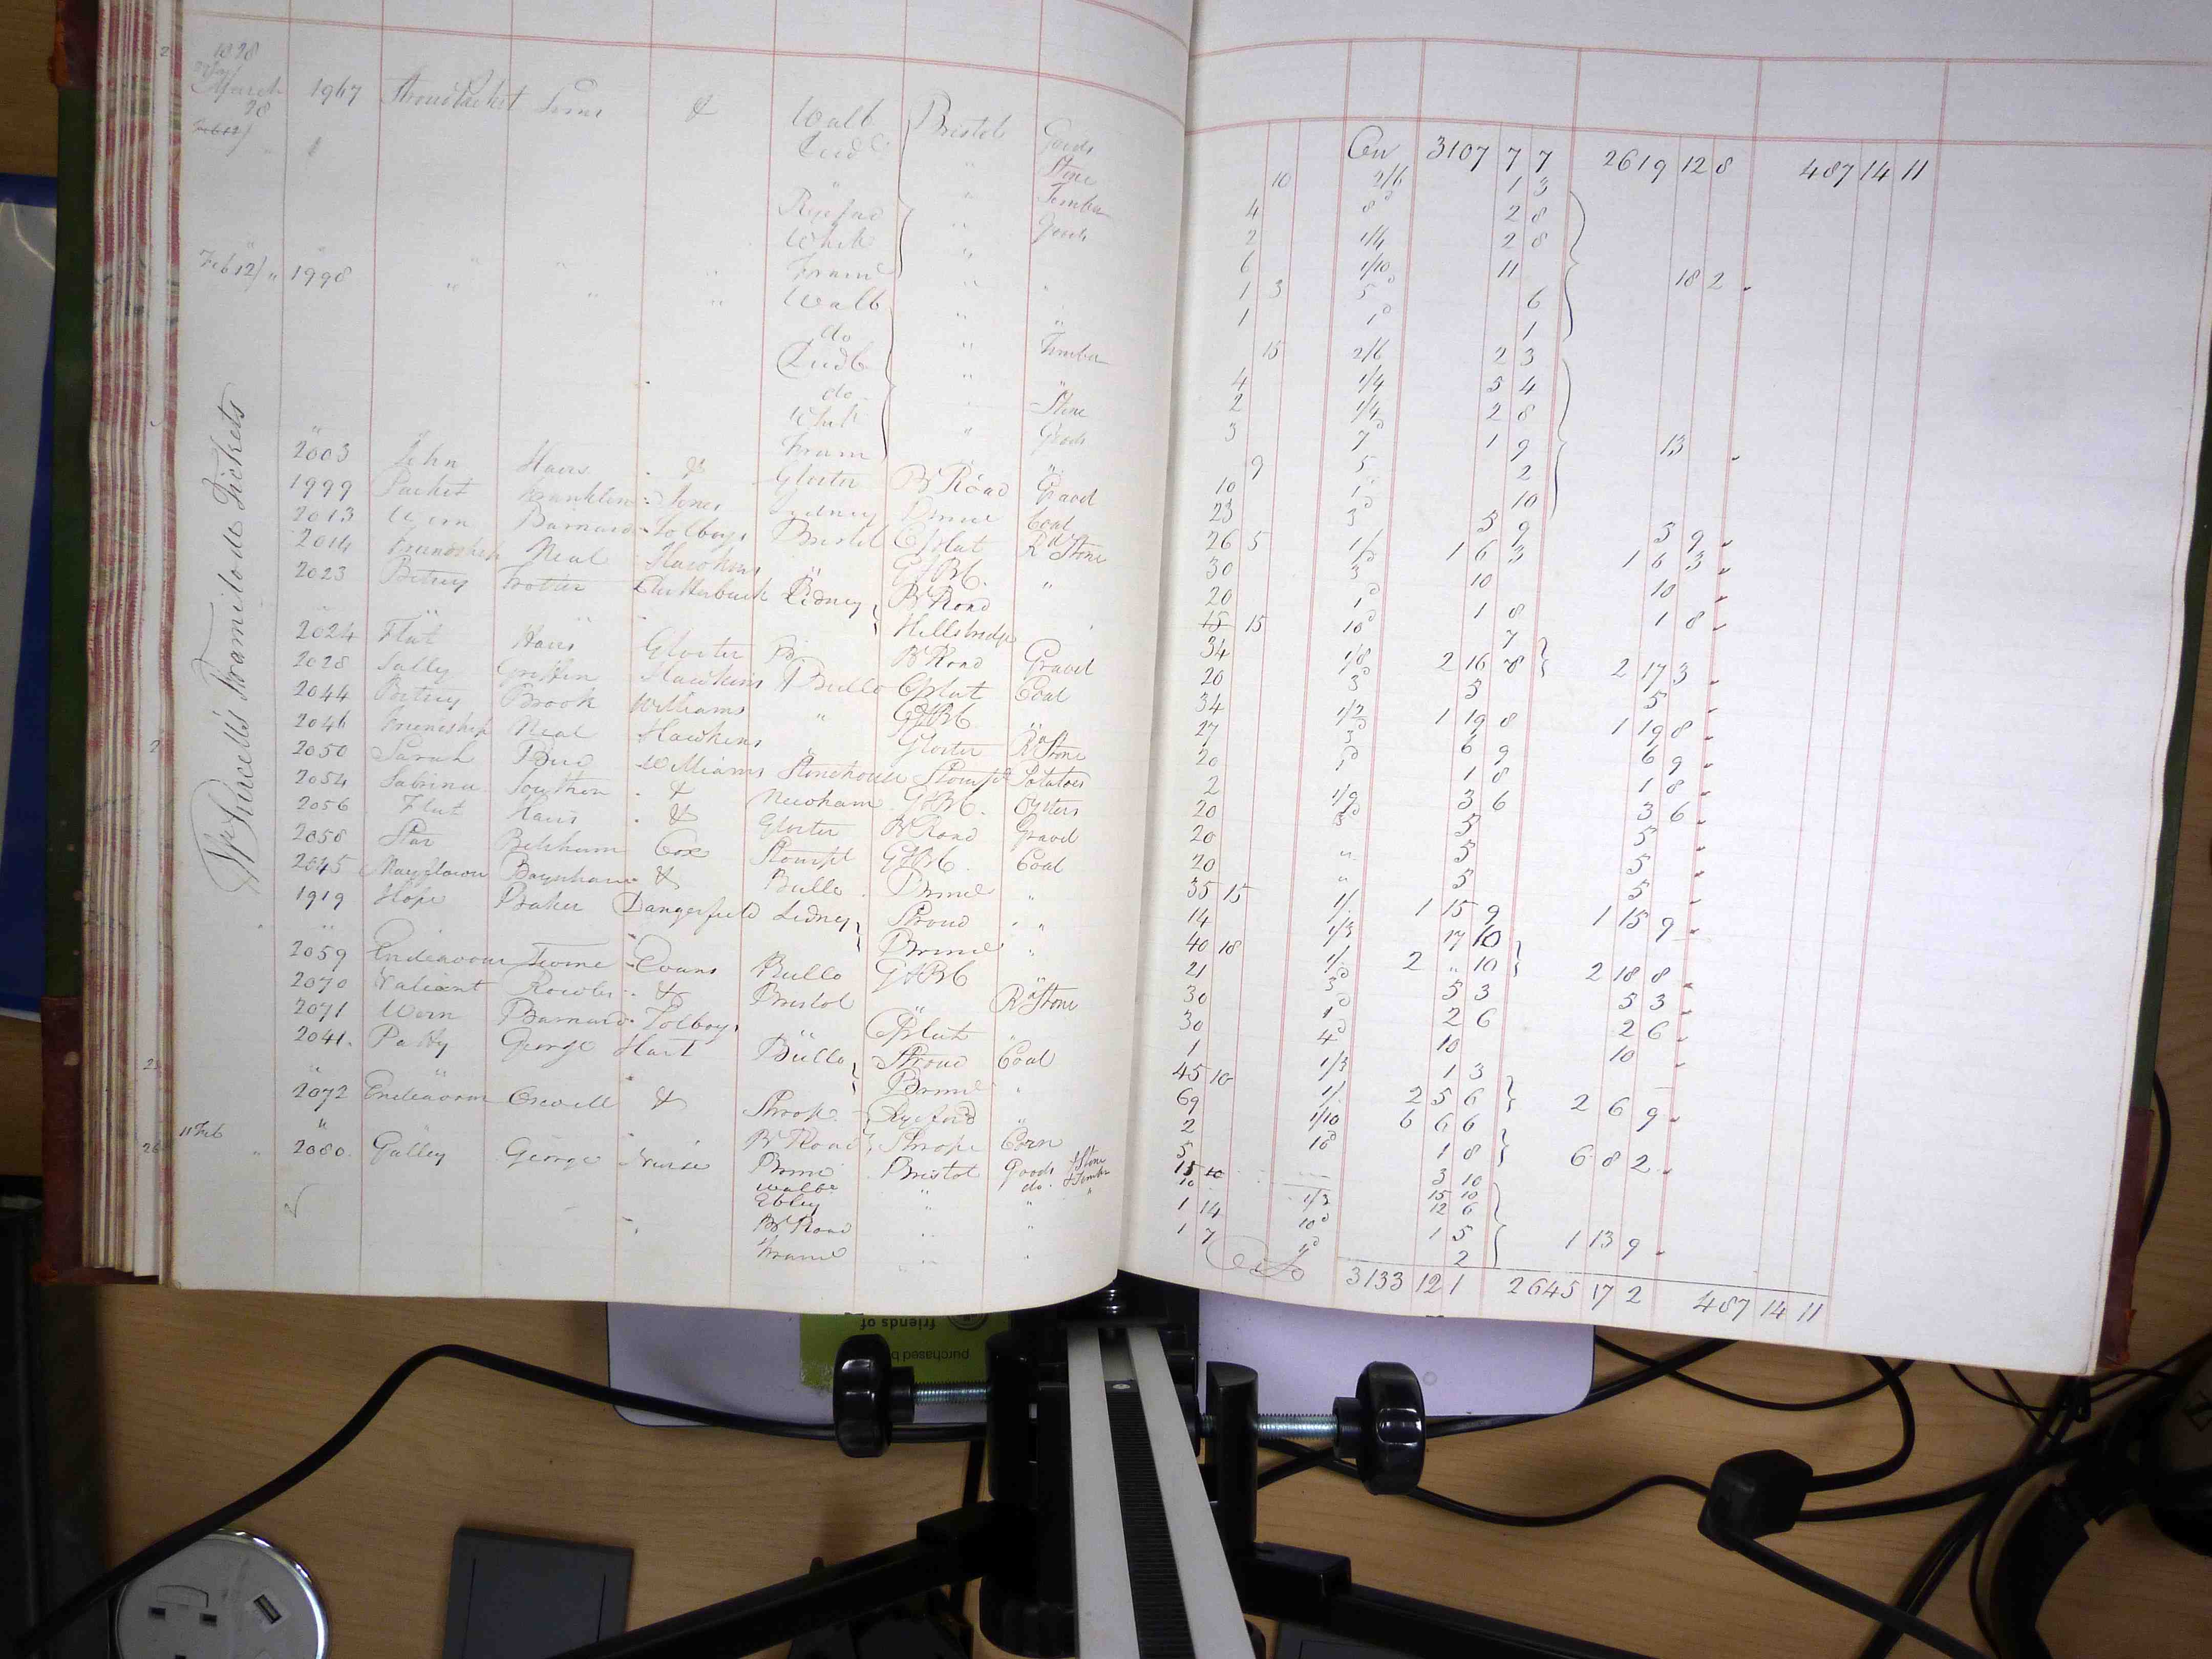 1828
March 28 1967 Stroud Packet Sims & Walb Bristol Goods
Cen 3107 7 7 2619 12 8 487 14 11
Feb 12/ " Ludb " Stone 10 2/6 1 3
" Timber 4 8d 2 8
Ryeford " Goods 2 1/4 2 8
White " 6 1/10 11
Feb 12/ " 1998 " " " Fram " " 1 3 5d 6 18 2
Walb " " 1 1d 1
do " Timber 15 2/6 2 3
Ludb " " 4 1/4 5 4
do " Stone 2 1/4 2 8
Whit " Goods 3 7d 1 9 13
Fram 9 5 2
2003 John Hairs & Gloster Br Road Gravel 10 1d 10
1999 Packet Franklin Jones Lydney Brimd Coal 23 3d 5 9 5 9
2013 Wern Barnard Tolboys Bristol Cplat R Stone 26 5 1/ 1 6 3 1 6 3
2014 Friendship Neal Hawkins " G&BC " 30 3 10 10
2023 Betsey Trotter Clutterbuck Lidney Br Road 20 1d 1 8 1 8
Hillsbridge 15 15 10d 7
2024 Flut Hairs Gloster Br Road Gravel 34 1/8 2 16 8 2 17 3
2028 Sally Griffin Hawkins Bullo Cplat Coal 20 3d 5 5
2044 Betsey Brook Williams " G&BC " 34 1/2 1 19 8 1 19 8
2046 Friendship Neal Hawkins " Gloster R Stone 27 3d 6 9 6 9
2050 Sarah Bird Williams Stonehouse Stourpt Potatoes 20 1d 1 8 1 8
2054 Sabrina Southern & Newnham G&BC Oysters 2 1/9 3 6 3 6
2056 Flut Hairs & Gloster Br Road Gravel 20 3d 5 5
2058 Star Belcham Cox Stourpt G&BC Coal 20 " 5 5
2045 Mayflower Baynham & Bullo Brimd " 20 " 5 5
1919 Hope Baker Dangerfield Lidney Stroud " 35 15 1/. 1 15 9 1 15 9
" Brimd " 14 1/3 17 10
2059 Endeavour Turner Evans Bullo G&BC 40 18 1/. 2 " 10 2 18 8
2070 Valiant Rowles & Bristol " R Stone 21 3d 5 3 5 3
2071 Wern Barnard Tolboys " Cplat " 30 1d 2 6 2 6
2041 Patty George Hart Bullo Stroud Coal 30 4d 10 10
" Brimd " 1 1/3 1 3
2072 Endeavour Crewell & Throp Ryeford " 45 10 1/. 2 5 6 2 6 9
11 Feb " Br Road Throp Corn 69 1/10 6 6 6
" 2080 Galley George Nurse Brimd Bristol Goods & Stone 2 10d 1 8 6 8 2
Walb " do & Timber 5 3 10
Ebley " " 15 10 15 10
Br Road " " 10 1/3 12 6
Fram " " 1 14 10d 1 5 1 13 9
1 7 1d 2
3133 12 1 2645 17 2 487 14 11
Wm Purcells Framilode Tickets
friends of
purchased b